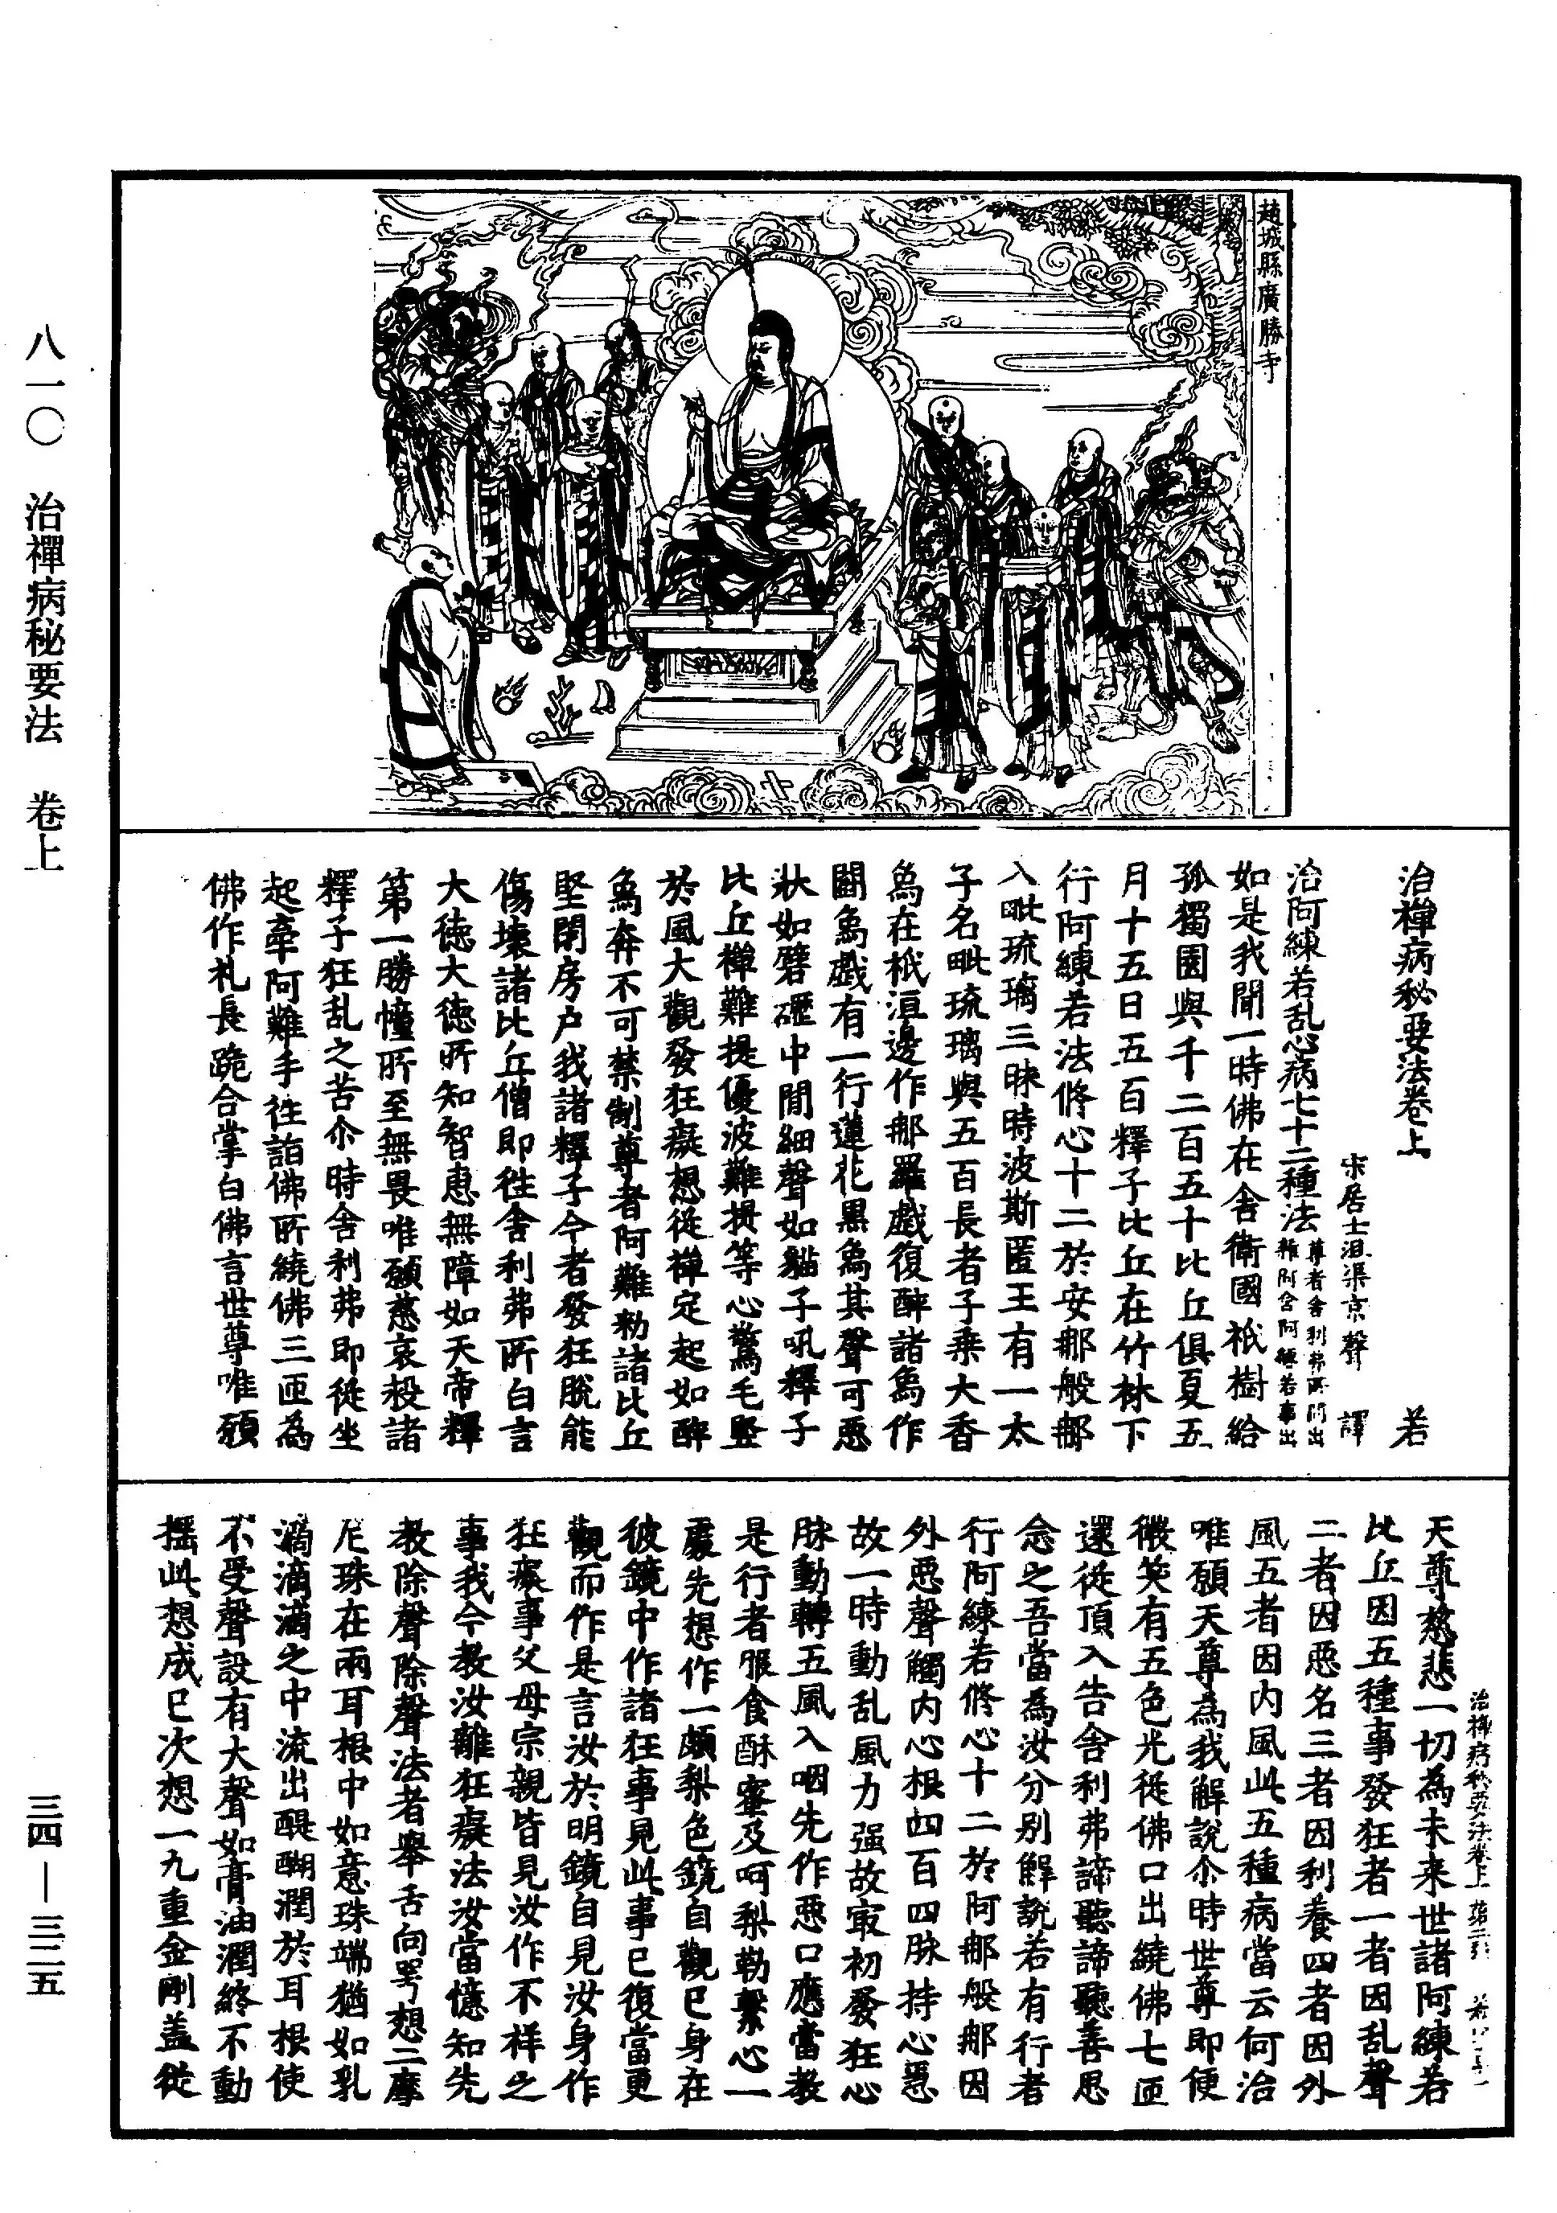 趙城縣廣勝寺
治禪病秘要法卷上 若
宋居士沮渠京聲 譯
治阿練若乱心病七十二種法 尊者舍利弗所問出雜阿含阿練若事出
如是我聞一時佛在舍衛國祇樹給
孤獨園與千二百五十比丘俱夏五
月十五日五百釋子比丘在竹林下
行阿練若法脩心十二於安那般那
入毗琉璃三昧時波斯匿王有一太
子名毗琉璃與五百長者子乘大香
象在祇洹邊作那羅戲復醉諸象作
鬪象戲有一行蓮花黑象其聲可惡
狀如礔礰中間細聲如貓子吼釋子
比丘禪難提優波難提等心驚毛竪
於風大觀發狂癡想從禪定起如醉
象奔不可禁制尊者阿難勑諸比丘
堅閉房户我諸釋子今者發狂脫能
傷壞諸比丘僧即往舍利弗所白言
大德大德所知智惠無障如天帝釋
第一勝幢所至無畏唯願慈哀救諸
釋子狂乱之苦尒時舍利弗即從坐
起牽阿難手往詣佛所繞佛三匝為
佛作礼長跪合掌白佛言世尊唯願
治禪病秘要法卷上 第二張 若
天尊慈悲一切為未來世諸阿練若
比丘因五種事發狂者一者因乱聲
二者因惡名三者因利養四者因外
風五者因內風此五種病當云何治
唯願天尊為我解說尒時世尊即便
微笑有五色光從佛口出繞佛七匝
還從頂入告舍利弗諦聽諦聽善思
念之吾當為汝分別解說若有行者
行阿練若脩心十二於阿那般那因
外惡聲觸內心根四百四脉持心急
故一時動乱風力强故㝡初發狂心
脉動轉五風入咽先作惡口應當教
是行者服食酥蜜及呵梨勒繫心一
處先想作一頗梨色鏡自觀已身在
彼鏡中作諸狂事見此事已復當更
觀而作是言汝於明鏡自見汝身作
狂癡事父母宗親皆見汝作不祥之
事我今教汝離狂癡法汝當憶知先
教除聲除聲法者舉舌向齶想二摩
尼珠在兩耳根中如意珠端猶如乳
滴滴滴之中流出醍醐潤於耳根使
不受聲設有大聲如膏油潤終不動
摇此想成已次想一九重金剛盖從
八一〇 治禪病秘要法 卷上
三四—三二五